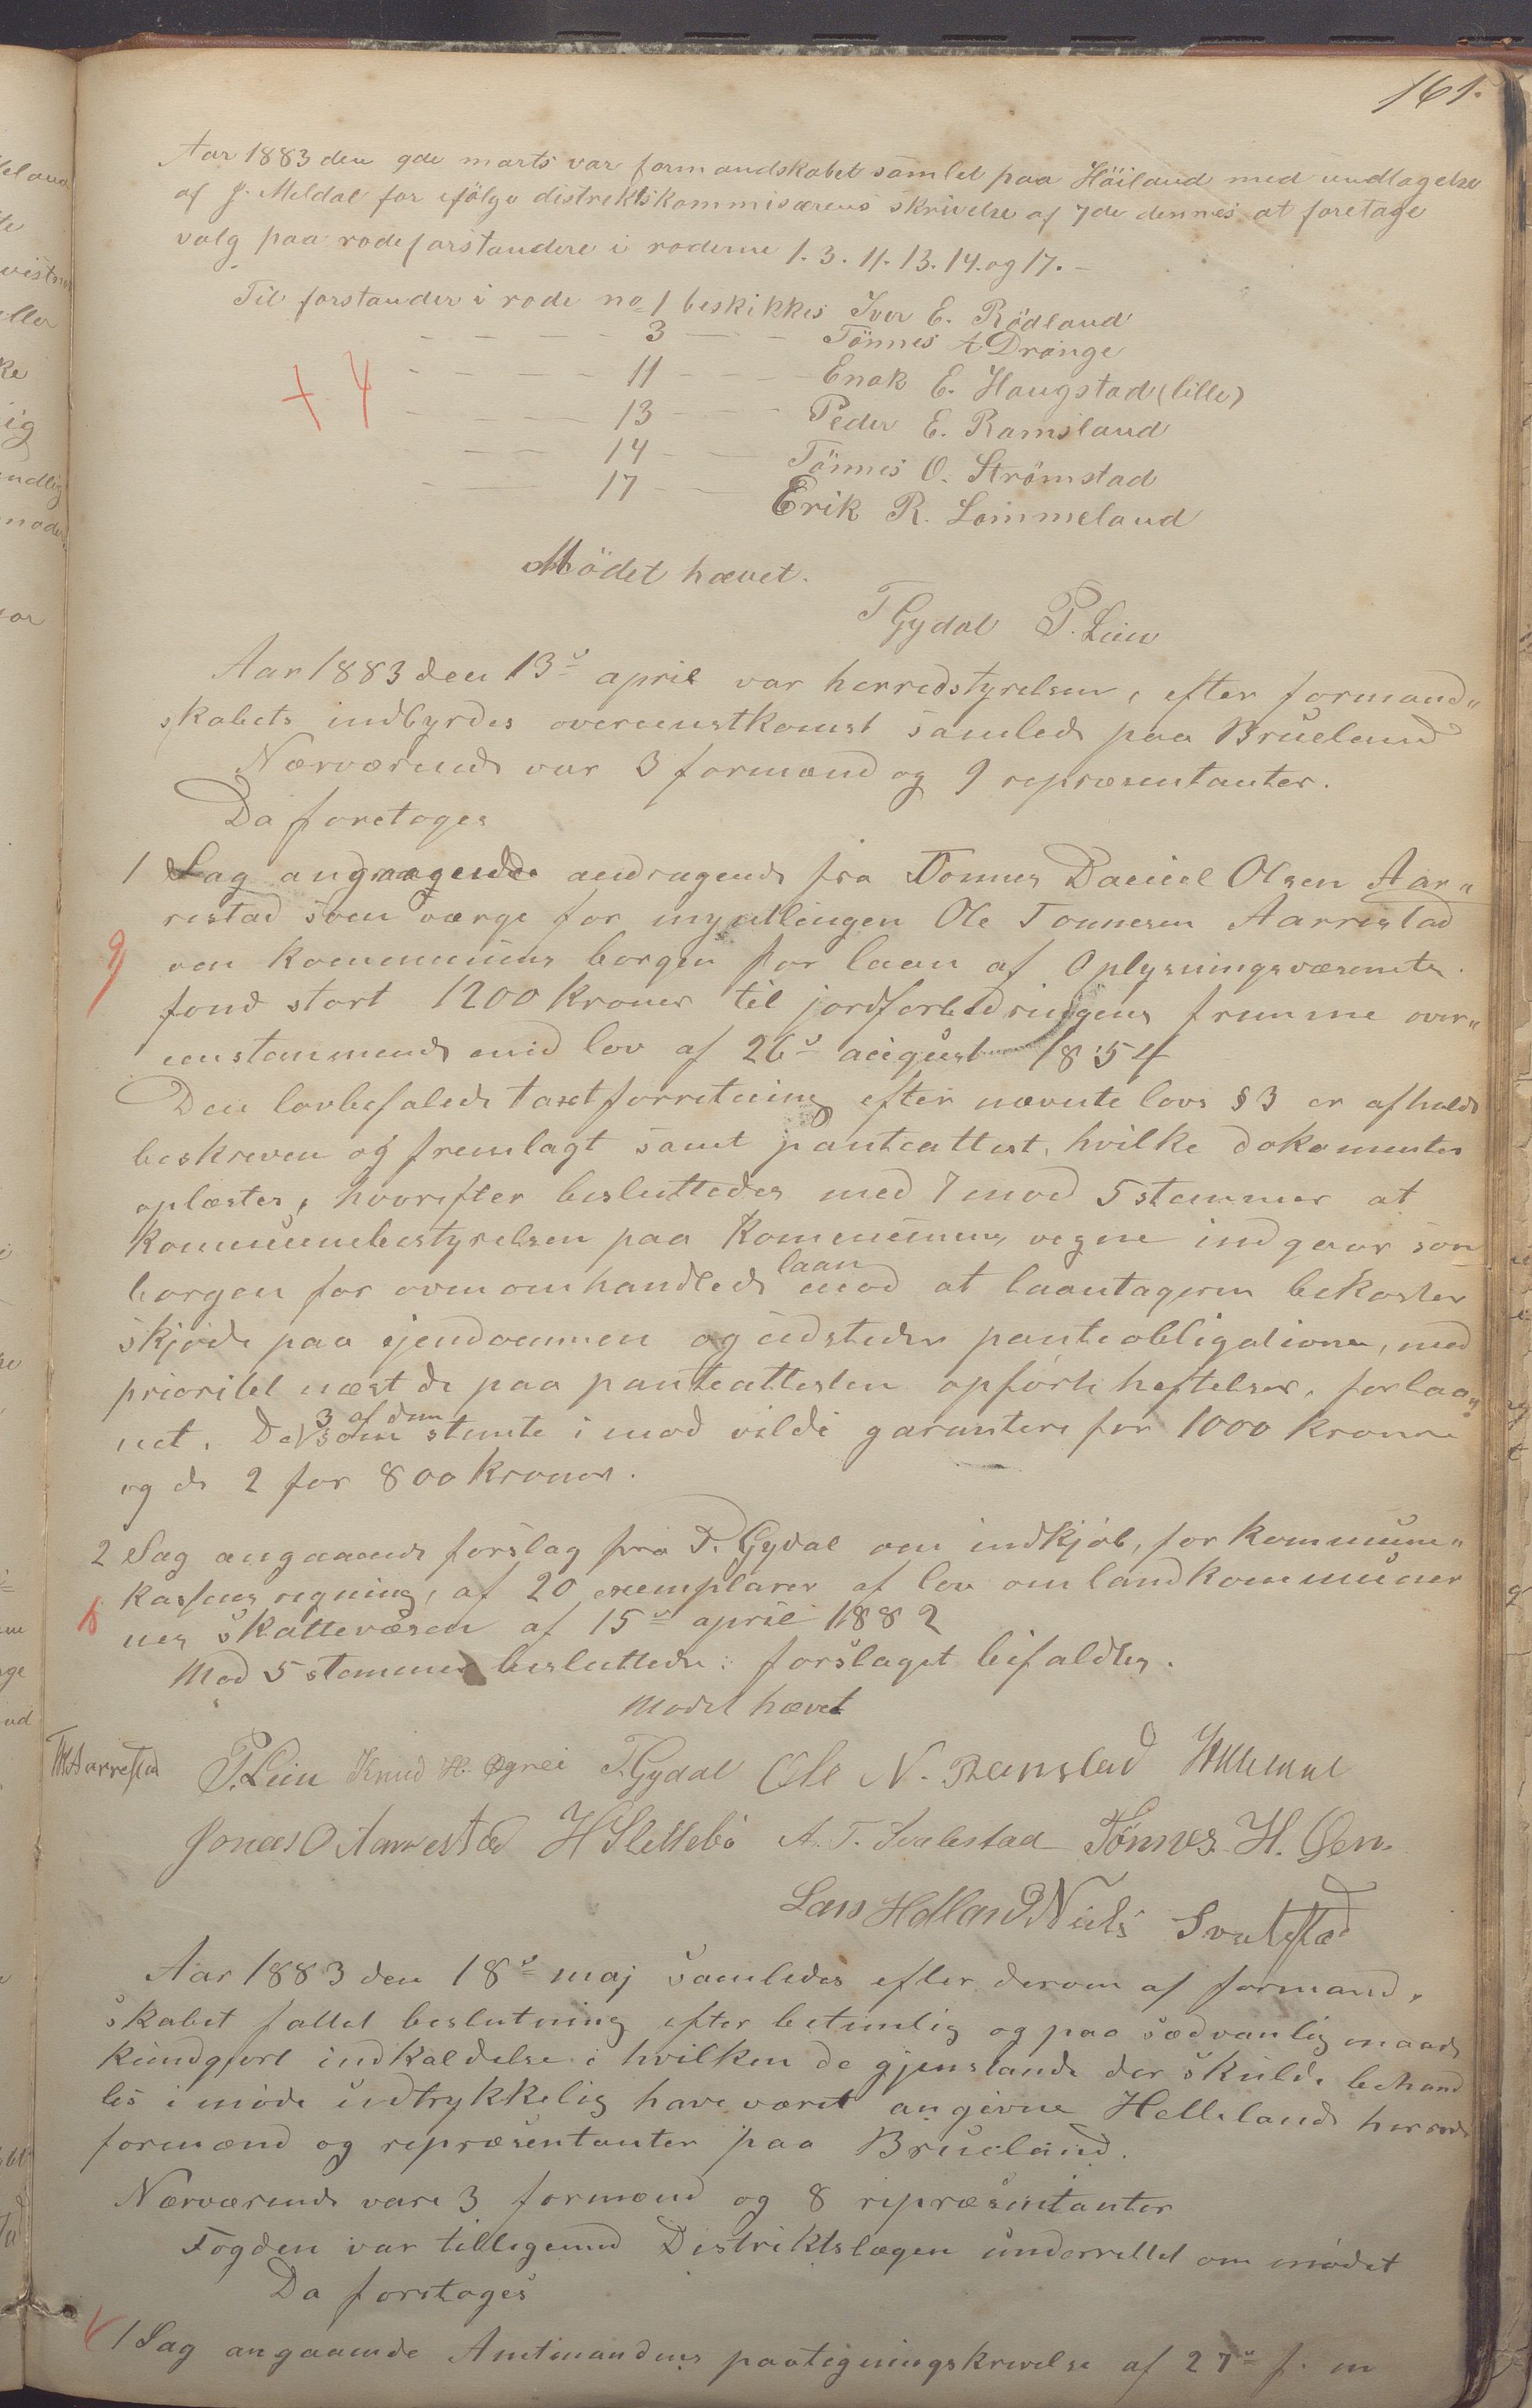 161.
Aar 1883 den 9de marts var formandskabet samlet paa Höiland med undtagelse
af J. Meldal for ifölge distriktskommisærens skrivelse af 7de dennes at foretage
valg paa rodeforstandere i roderne 1. 3. 11. 13. 14. og 17. –
Til forstander i rode no 1 beskikkes Iver E. Rödland
– – – – 3 – – Tönnes A Drange
+ 4 – – – – 11 – – – Enok E. Haugstad (lille)
– – – – 13 – – – Peder E. Ramsland
– – 14 – – Tönnes O. Strömstad
– – – 17 – – Erik R. Lommeland
Mödet hævet.
T Gydal P. Lien
Aar 1883 den 13de april var herredstyrelsen, efter formand„
skabets indbyrdes overeenstkomst samlede paa Brueland
Nærværende var 3 formænd og 9 repræsentanter.
Da foretoges
1 Sag angaaende andragende fra Tönnes Daniel Olsen Aar„
restad som værge for myndlingen Ole Tonnesen Aarrestad
9 om kommunens borgen for laan af Oplysningsvæsenets
fond stort 1200 kroner til jordforbedringens fremme over„
eenstemmende mid lov af 26de august 1854
Den lovbefalede taxtforretning efter nævnte lovs § 3 er afholdt
beskreven og fremlagt samt panteattest, hvilke dokumenter
oplæstes, hvorefter besluttedes med 7 mod 5 stemmer at
kommunebestyrelsen paa Kommunens vegne indgaar som
borgen for ovenomhandlede laan mod at laantageren bekoster
skjöde paa ejendommen og udsteder panteobligationer, med
prioritet næst de paa panteattesten opförte heftelser, for laa„
net. De 3 af dem som stemte imod vilde garantere for 1000 kroner
og de 2 for 800 kroner.
2 Sag angaaende forslag fra T. Gydal om indkjöb, for kommune„
kassens regning, af 20 exemplarer af lov om landkommuner
nes skattevæsen af 15de april 1882
Mod 5 stemmer besluttedes: forslaget bifaldtes.
Mödet hævet
TM Aarrestad P. Lien Knud H. Øgrei T. Gydal Ole N. Ramslad
Jonas O Aarrestad H Slettebö A. T. Svalestad Tönnes H. Øen.
Lars Helland Niels Svalestad
Aar 1883 den 18de maj samledes efter derom af formand„
skabet fattet beslutning efter betimelig og paa sædvanlig maade
kundgjort indkaldelse i hvilken de gjenstande der skulde behand
les i möde udtrykkelig have været angivne Hellelands herreds
formænd og repræsentanter paa Brueland.
Nærværende vare 3 formænd og 8 repræsentanter
Fogden var tilligemed Distriktslægen underrettet om mödet
Da foretoges
1 Sag angaaende Amtmandens paategningsskrivelse af 27de f. m